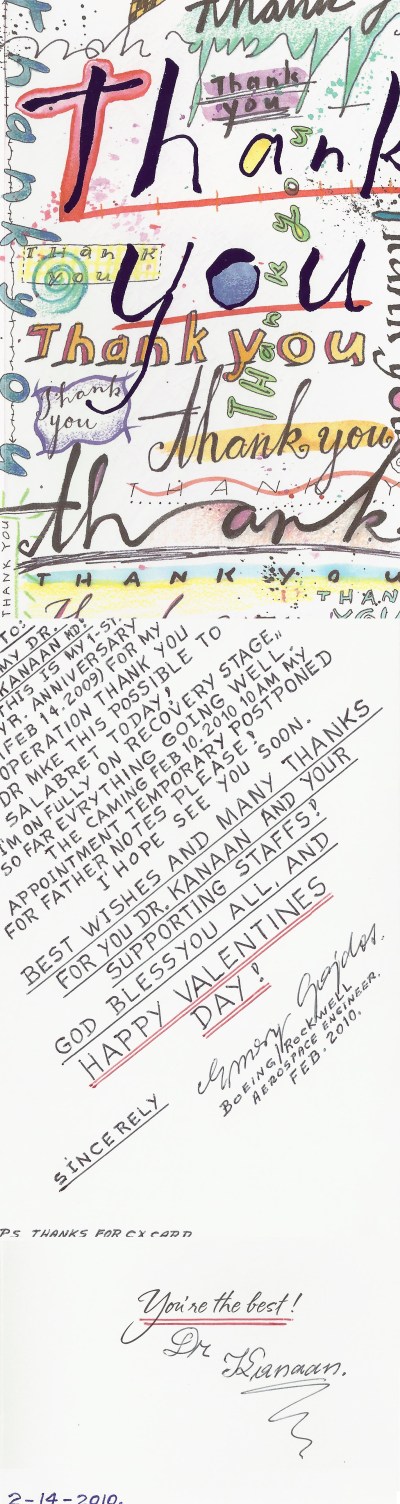 Thank
thank you
Thank
you
Thank
thank you
THANK
YOU
you
Thank you
THank you
thank you
Thank
you
thank you
THANK Y
thank
THANK YOU
THANK YOU
THAN
YOU
TO:
MY DR.
KANAAN MD.
THIS IS MY 1-ST
YR. ANNIVERSARY
(FEB 14.2009) FOR MY
OPERATION THANK YOU
DR MKE THIS POSSIBLE TO
SALABRET TODAY!
I'M ON FULLY ON RECOVERY STAGE,,
SO FAR EVRYTHING GOING WELL.
THE CAMING FEB 10, 2010 10AM MY
APPOINTMENT TEMPORARY POSTPONED
FOR FATHER NOTES PLEASE!
I'HOPE SEE YOU SOON.
BEST WISHES AND MANY THANKS
FOR YOU DR. KANAAN AND YOUR
SUPPORTING STAFFS!
GOD BLESS YOU ALL, AND
HAPPY VALENTINES
DAY!
Emory Gajdos.
BOEING/ROCKWELL
AEROSPACE ENGINEER.
FEB. 2010.
SINCERELY
PS THANKS FOR CX CARD
You're the best!
Dr
Kanaan.
2-14-2010.